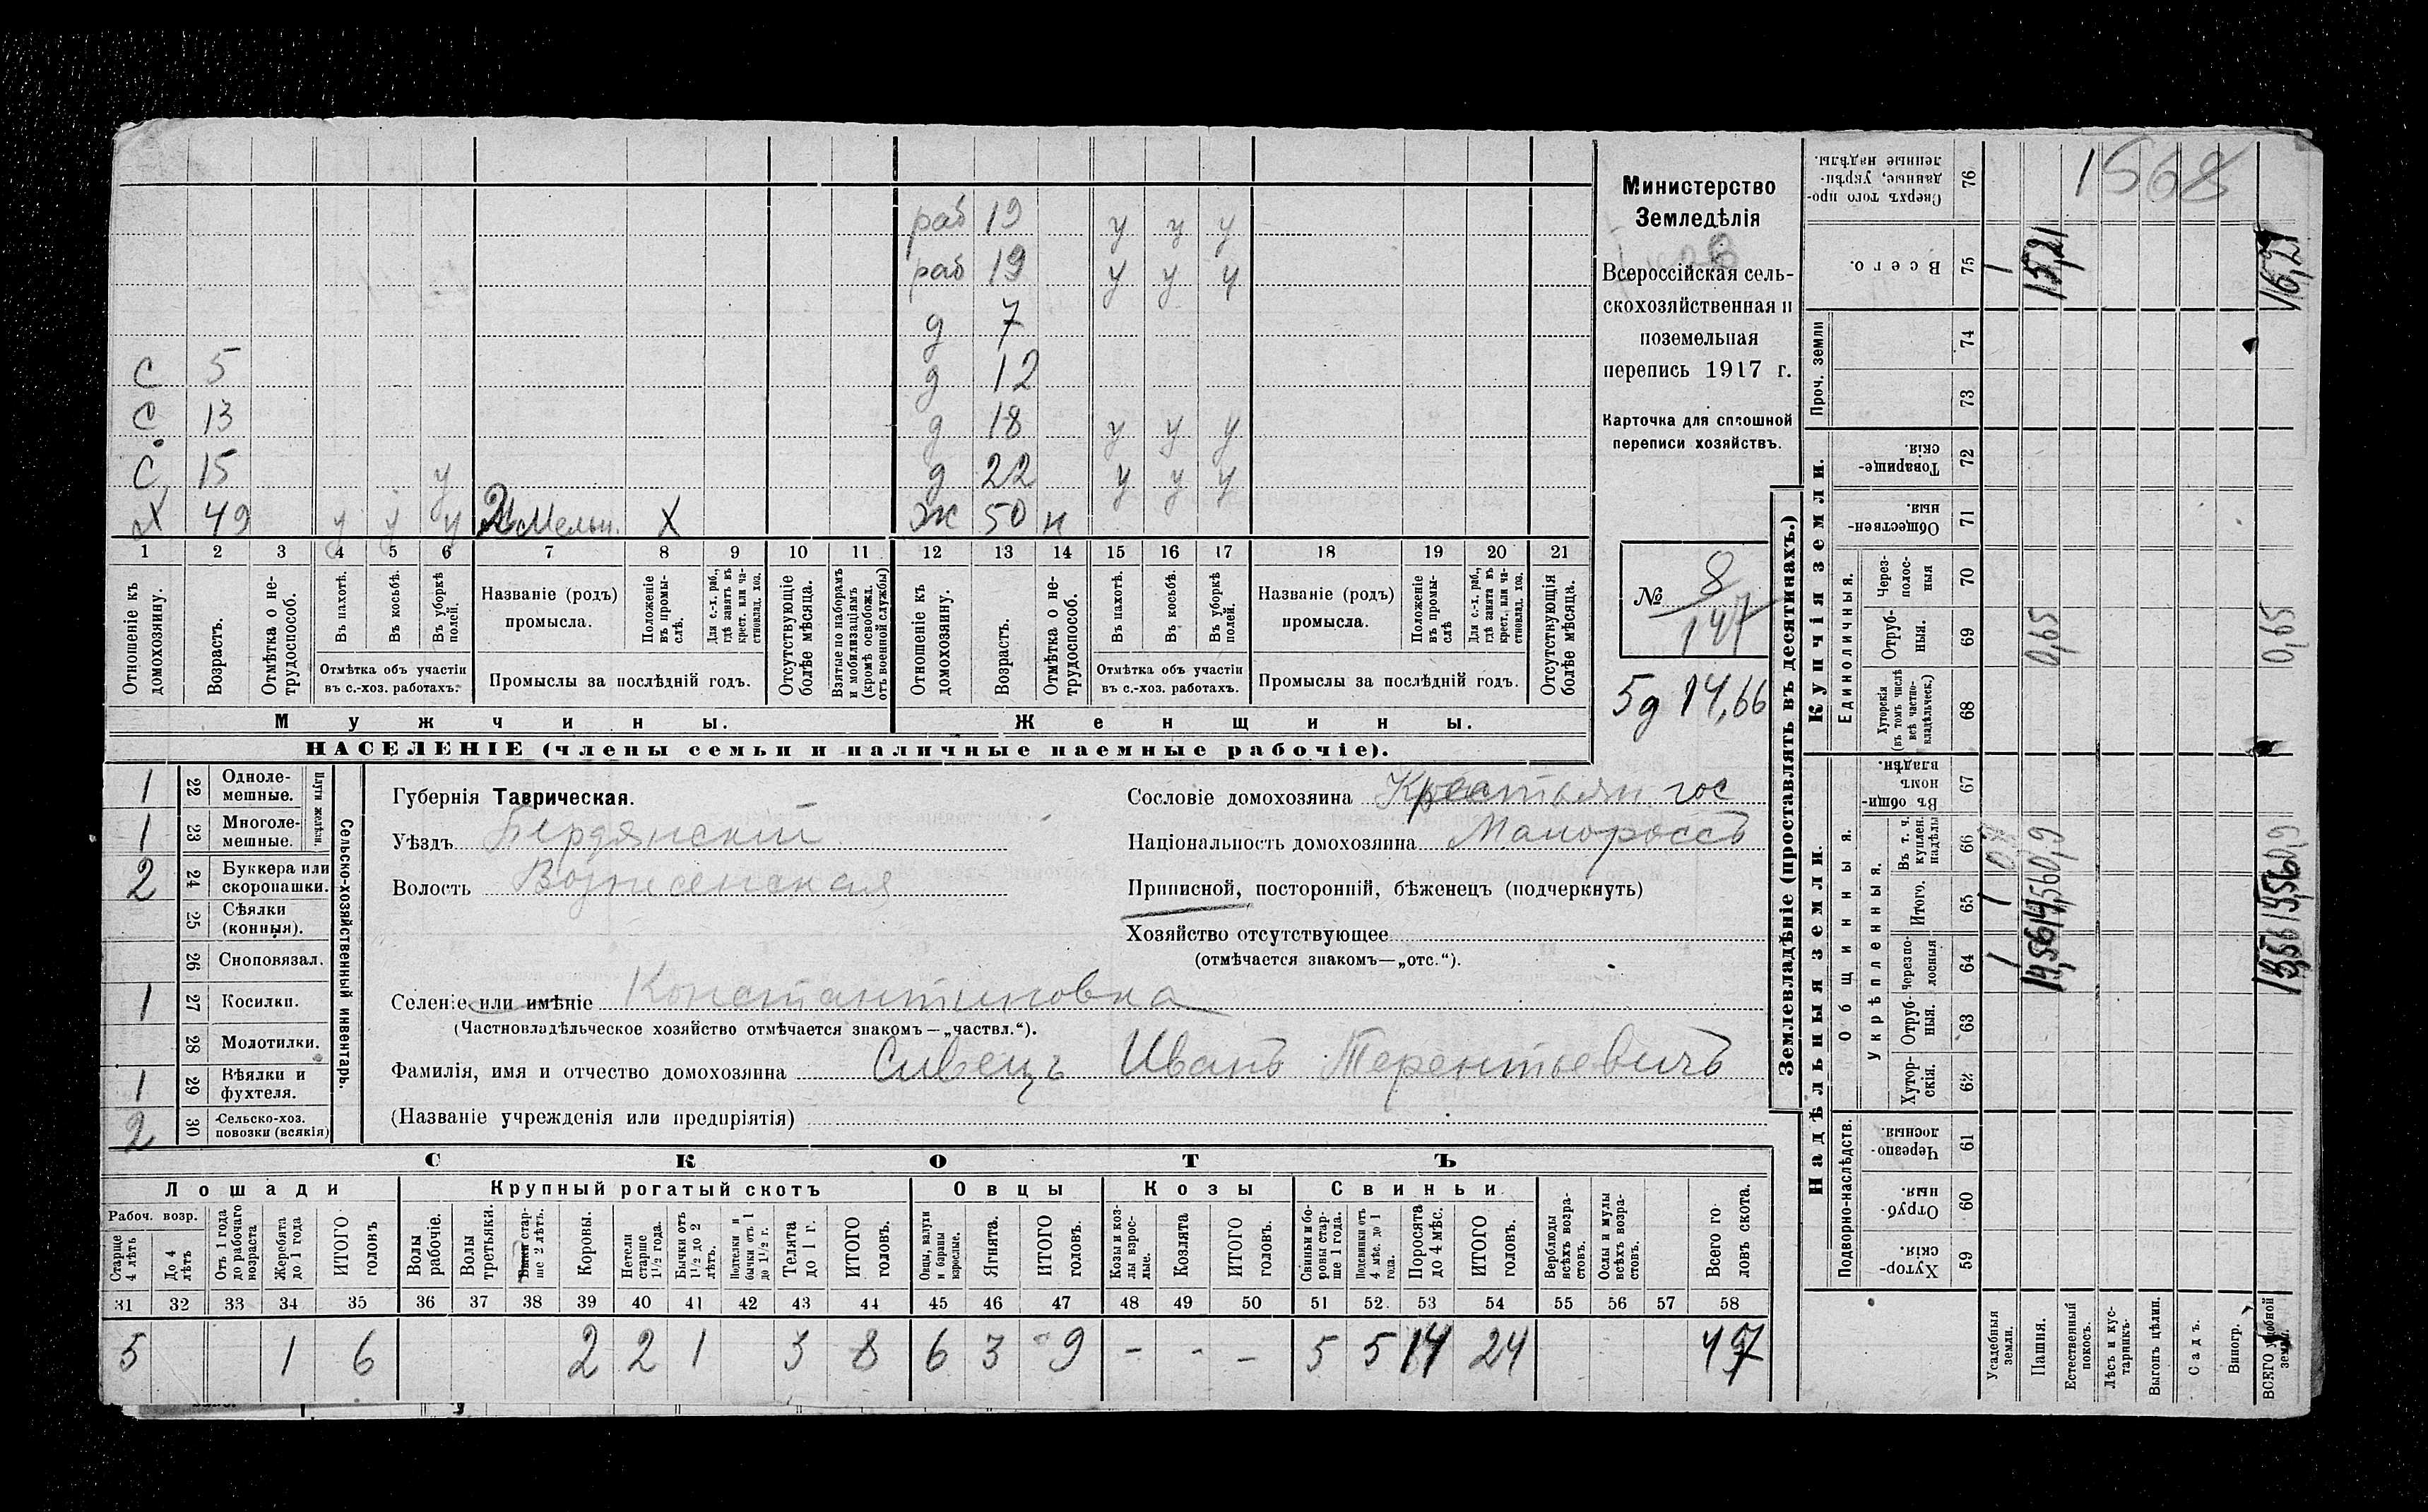 раб 19 у у у
раб 19 у у у
д 7
С 5 д 12
С 13 д 18 у у у
С 15 у д 22 у у у
Х 49 у у у Мельн. Х Ж 50 н
1 2 3 4 5 6 7 8 9 10 11 12 13 14 15 16 17 18 19 20 21
Отношеніе къ домохозяину.
Возрастъ.
Отмѣтка о нетрудоспособ.
Въ пахотѣ.
Въ косьбѣ.
Въ уборкѣ полей.
Отмѣтка объ участіи въ с.-хоз. работахъ.
Названіе (родъ) промысла.
Положеніе въ промыслѣ.
Для с.-х. раб., гдѣ занятъ въ крест. или частновлад. хоз.
Промыслы за послѣдній годъ.
Отсутствующіе болѣе мѣсяца.
Взятые по наборамъ и мобилизаціямъ (кромѣ освобожд. отъ военной службы)
Отношеніе къ домохозяину.
Возрастъ.
Отмѣтка о нетрудоспособ.
Въ пахотѣ.
Въ косьбѣ.
Въ уборкѣ полей.
Отмѣтка объ участіи въ с.-хоз. работахъ.
Названіе (родъ) промысла.
Положеніе въ промыслѣ
Для с.-х. раб., гдѣ занята въ крест. или частновлад. хоз.
Промыслы за послѣдній годъ.
Отсутствующія болѣе мѣсяца.
Мужчины. Женщины.
НАСЕЛЕНІЕ (члены семьи и наличные наемные рабочіе).
Министерство
Земледѣлія
Всероссійская сель-
скохозяйственная и
поземельная
перепись 1917 г.
Карточка для сплошной
переписи хозяйствъ.
№ 8
147
5д 14,66
Сельско-хозяйственный инвентарь.
Плуги желѣзн.
1 22 Одноле-мешные.
1 23 Многоле-мешные.
2 24 Буккера или скоропашки.
25 Сѣялки (конныя).
26 Сноповязал.
1 27 Косилки.
28 Молотилки.
1 29 Вѣялки и фухтеля.
2 30 Сельско-хоз. повозки (всякія)
Губернія Таврическая.
Уѣздъ Бердянскій
Волость Вознесенская
Сословіе домохозяина Крестьян гос
Національность домохозяина Малороссъ
Приписной, посторонній, бѣженецъ (подчеркнуть)
Хозяйство отсутствующее
(отмѣчается знакомъ—„отс.“).
Селеніе или имѣніе Константиновка
(Частновладѣльческое хозяйство отмѣчается знакомъ—„частвл.“).
Фамилія, имя и отчество домохозяина Сивецъ Иванъ Терентьевичъ
(Названіе учрежденія или предпріятія)
СКОТЪ
Лошади Крупный рогатый скотъ Овцы Козы Свиньи
Рабоч. возр.
Старше 4 лѣтъ
До 4 лѣтъ
Отъ 1 года до рабочаго возраста
Жеребята до 1 года
ИТОГО головъ
Волы рабочіе.
Волы третьяки.
Быки старше 2 лѣтъ.
Коровы.
Нетели старше 1½ года.
Бычки отъ 1½ до 2 лѣтъ.
Подтелки и бычки отъ 1 до 1½ г.
Телята до 1 г.
ИТОГО головъ.
Овцы, валухи и бараны взрослые.
Ягнята.
ИТОГО головъ.
Козы и козлы взрослые.
Козлята
ИТОГО головъ.
Свиньи и боровы старше 1 года.
Подсвинки отъ 4 мѣс. до 1 года.
Поросята до 4 мѣс.
ИТОГО головъ.
Верблюды всѣхъ возрастовъ.
Ослы и мулы всѣхъ возрастовъ.
Всего головъ скота.
31 32 33 34 35 36 37 38 39 40 41 42 43 44 45 46 47 48 49 50 51 52. 53 54 55 56 57 58
5 1 6 2 2 1 3 8 6 3 9 - - - 5 5 14 24 47
Землевладѣніе (проставлять въ десятинахъ.)
Надѣльныя земли.
Подворно-наслѣдств.
59 Хуторскія.
60 Отрубныя.
61 Черезполосныя.
Общинныя.
Укрѣпленныя.
62 Хуторскія.
63 Отрубныя.
64 Черезполосныя
65 Итого.
66 Въ т. ч. куплен. надѣлы
67 Въ общинномъ владѣн.
Купчія земли.
Единоличныя.
68 Хуторскія (въ томъ числѣ всѣ частновладѣльческ.)
69 Отрубныя.
70 Черезполосныя
71 Общественныя.
72 Товарищескія.
Проч. земли
73
74
75 Всего.
76 Сверхъ того проданные, укрѣпленные надѣлы.
Усадебныя земли.
Пашня.
Естественный покосъ.
Лѣсъ и кустарникъ
Выгонъ цѣлин.
Садъ.
Виногр.
ВСЕГО удобной земли.
1 1 1
14,56 14,56 0,9 0,65 15,21
0,65 16,21
1568